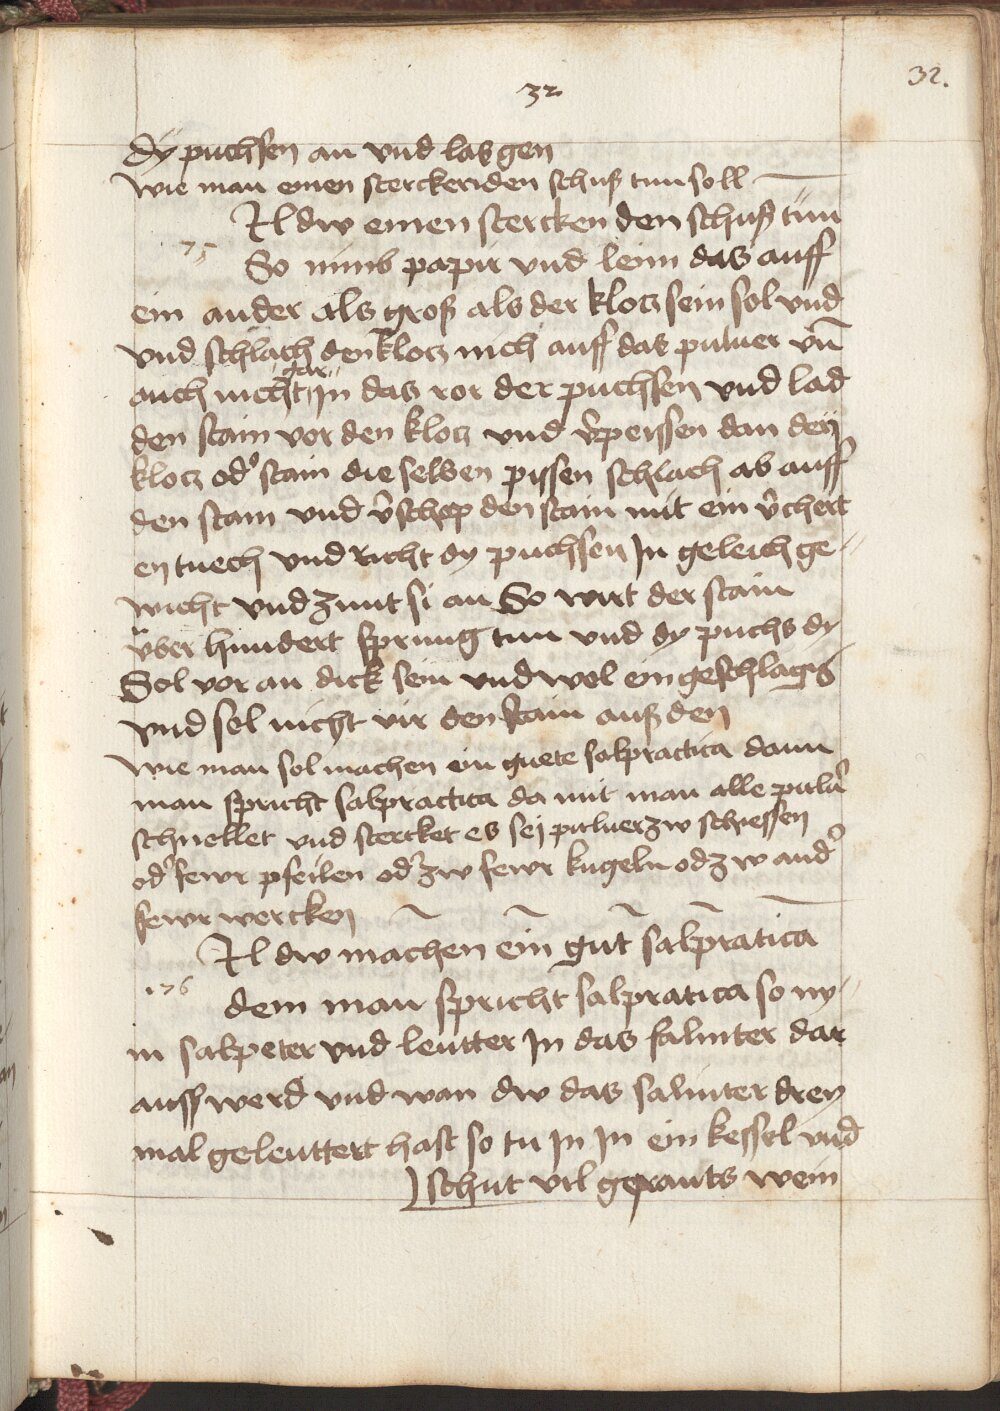 32.
32
dÿ puchsen an vnd las gen
wie man einen sterckenden schuß tun soll
Il dw einen stercken den schuß tün
75
So nimb papir vnd leim das auff
ein ander als groß als der klocz sein sol vnd
vnd schlach den klocz nich auff das puluer vn̄
auch nicht gar in das ror der puchsen vnd lad
den stain vor den klocz vnd v̂peissen dan den
klocz od' stain die selben pissen schlach ab auff
den stain vnd v̂schop den stain mit ein v̂chert
en tuech vnd richt dy puchsen In geleich ge-
wicht vnd zunt si an So wirt der stain
v̈ber hundert sprung tun vnd dy puchs dy
Sol vor an dick sein vnd wol ein geschlagn̄
vnd sol nicht vir den stain auß den
wie man sol machen ein guete salpractica dann
man spricht salpractica da mit man alle puluer̄
schnellet vnd stercket es sej puluer zw schiessen
od' fewr pfeilen od' zw fewr kugeln od zw and'
fewr wercken
Il dw machen ein gut salpratica
176
dem man spricht salpratica so ny-
m salpeter vnd leutter In das salniter dar
auss werd vnd wan dw das salniter drey
mal geleuttert hast so tu In In ein kessel vnd
schut vil geprants wein